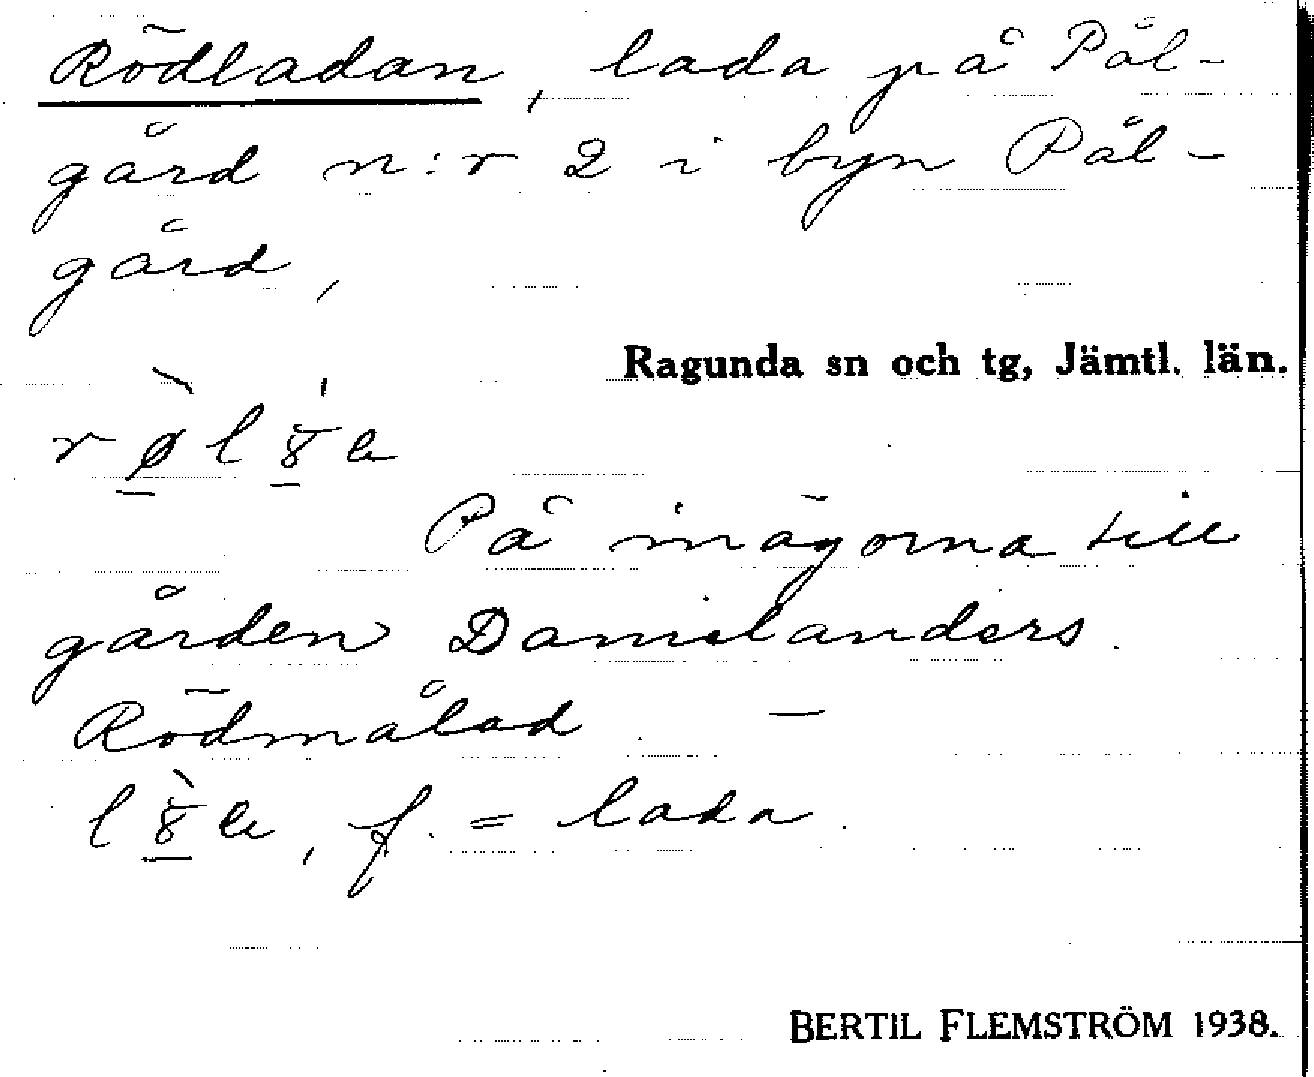 Rödladan, lada på Pål-
gård n:r 2 i byn Pål-
gård,
Ragunda sn och tg, Jämtl. län.
På inägorna till
gården Danielanders.
Rödmålad. —
f. = lada.
BERTIL FLEMSTRÖM 1938.